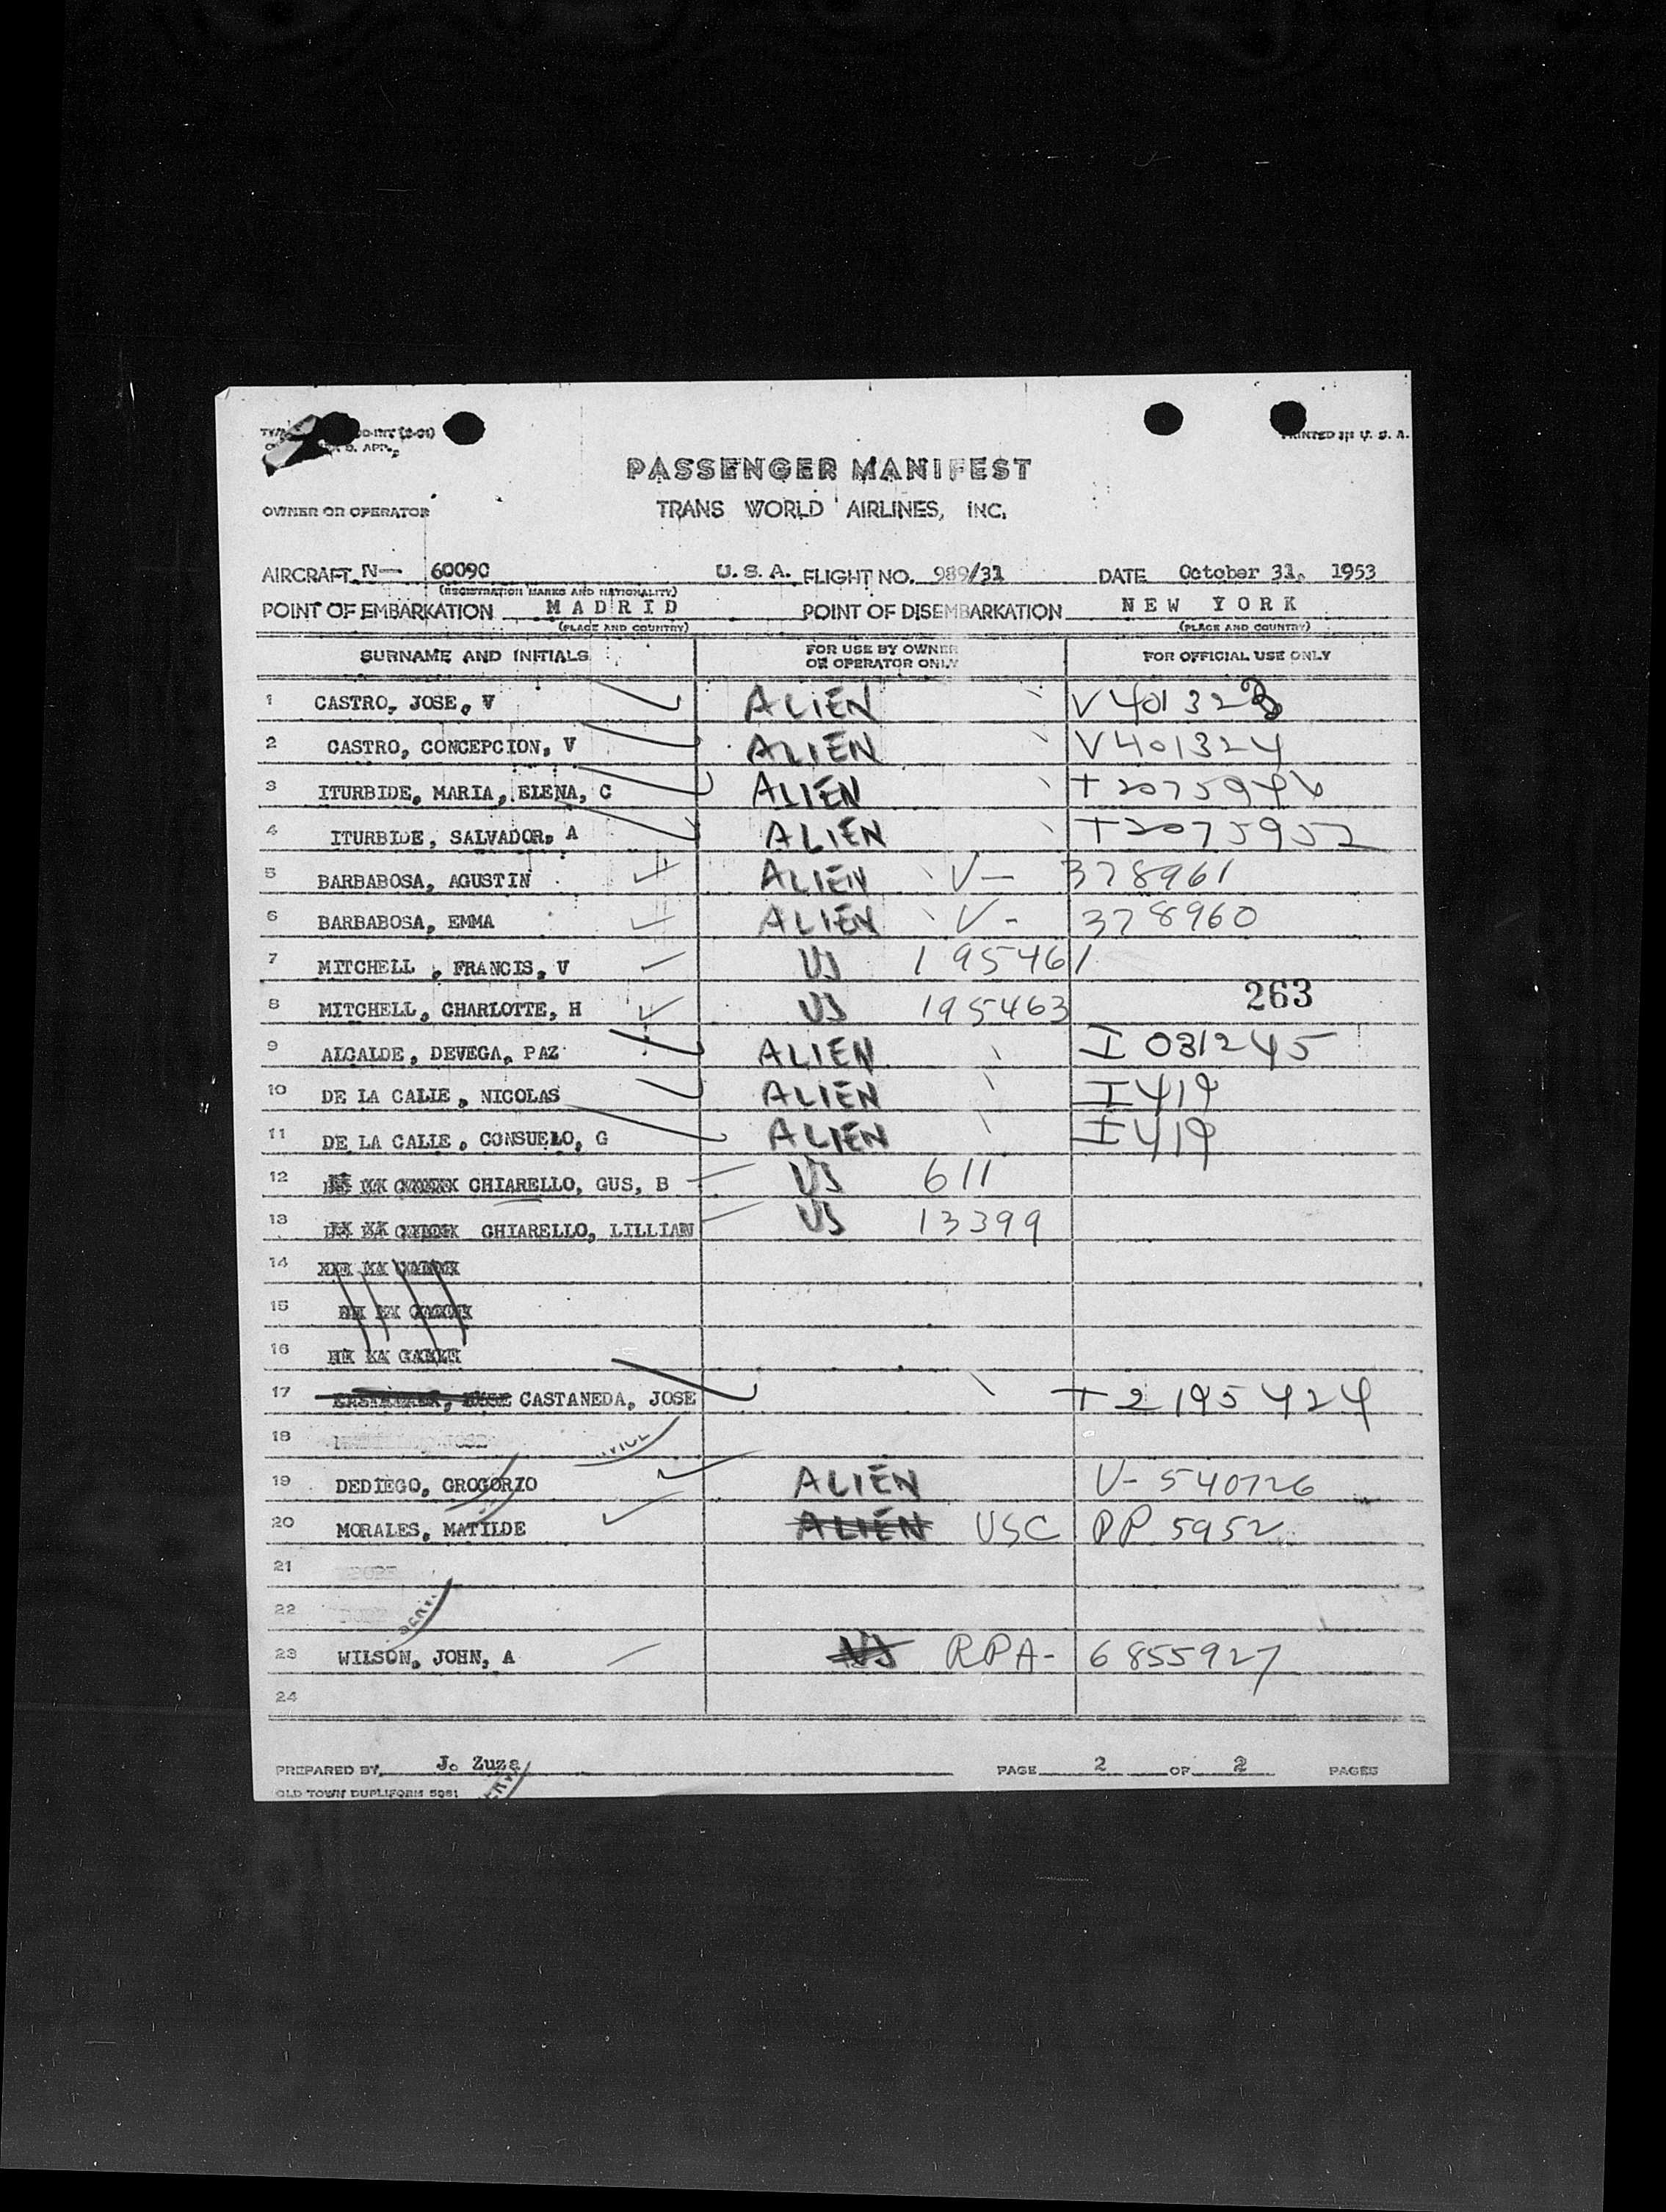 PRINTED IN U. S. A.
PASSENGER MANIFEST
OWNER OR OPERATOR
TRANS WORLD AIRLINES, INC.
AIRCRAFT N— 6009C U.S.A. FLIGHT NO. 989/31 DATE October 31, 1953
(REGISTRATION MARKS AND NATIONALITY)
POINT OF EMBARKATION MADRID POINT OF DISEMBARKATION NEW YORK
(PLACE AND COUNTRY) (PLACE AND COUNTRY)
SURNAME AND INITIALS FOR USE BY OWNER OR OPERATOR ONLY FOR OFFICIAL USE ONLY
1 CASTRO, JOSE, V ALIEN V401323
2 CASTRO, CONCEPCION, V ALIEN V401324
3 ITURBIDE, MARIA, ELENA, C ALIEN T2075946
4 ITURBIDE, SALVADOR, A ALIEN T2075952
5 BARBABOSA, AGUSTIN ALIEN V— 378961
6 BARBABOSA, EMMA ALIEN V- 378960
7 MITCHELL, FRANCIS, V US 195461
8 MITCHELL, CHARLOTTE, H US 195463 263
9 ALCALDE, DEVEGA, PAZ ALIEN I 031245
10 DE LA CALLE, NICOLAS ALIEN I419
11 DE LA CALLE, CONSUELO, G ALIEN I419
12 CHIARELLO, GUS, B US 611
13 CHIARELLO, LILLIAN US 13399
14
15
16
17 CASTANEDA, JOSE T 2195424
18
19 DEDIEGO, GROGORIO ALIEN V- 540726
20 MORALES, MATILDE ALIEN USC PP 5952
21
22
23 WILSON, JOHN, A US RPA- 6855927
24
PREPARED BY J. Zuza PAGE 2 OF 2 PAGES
OLD TOWN DUPLIFORM 5081